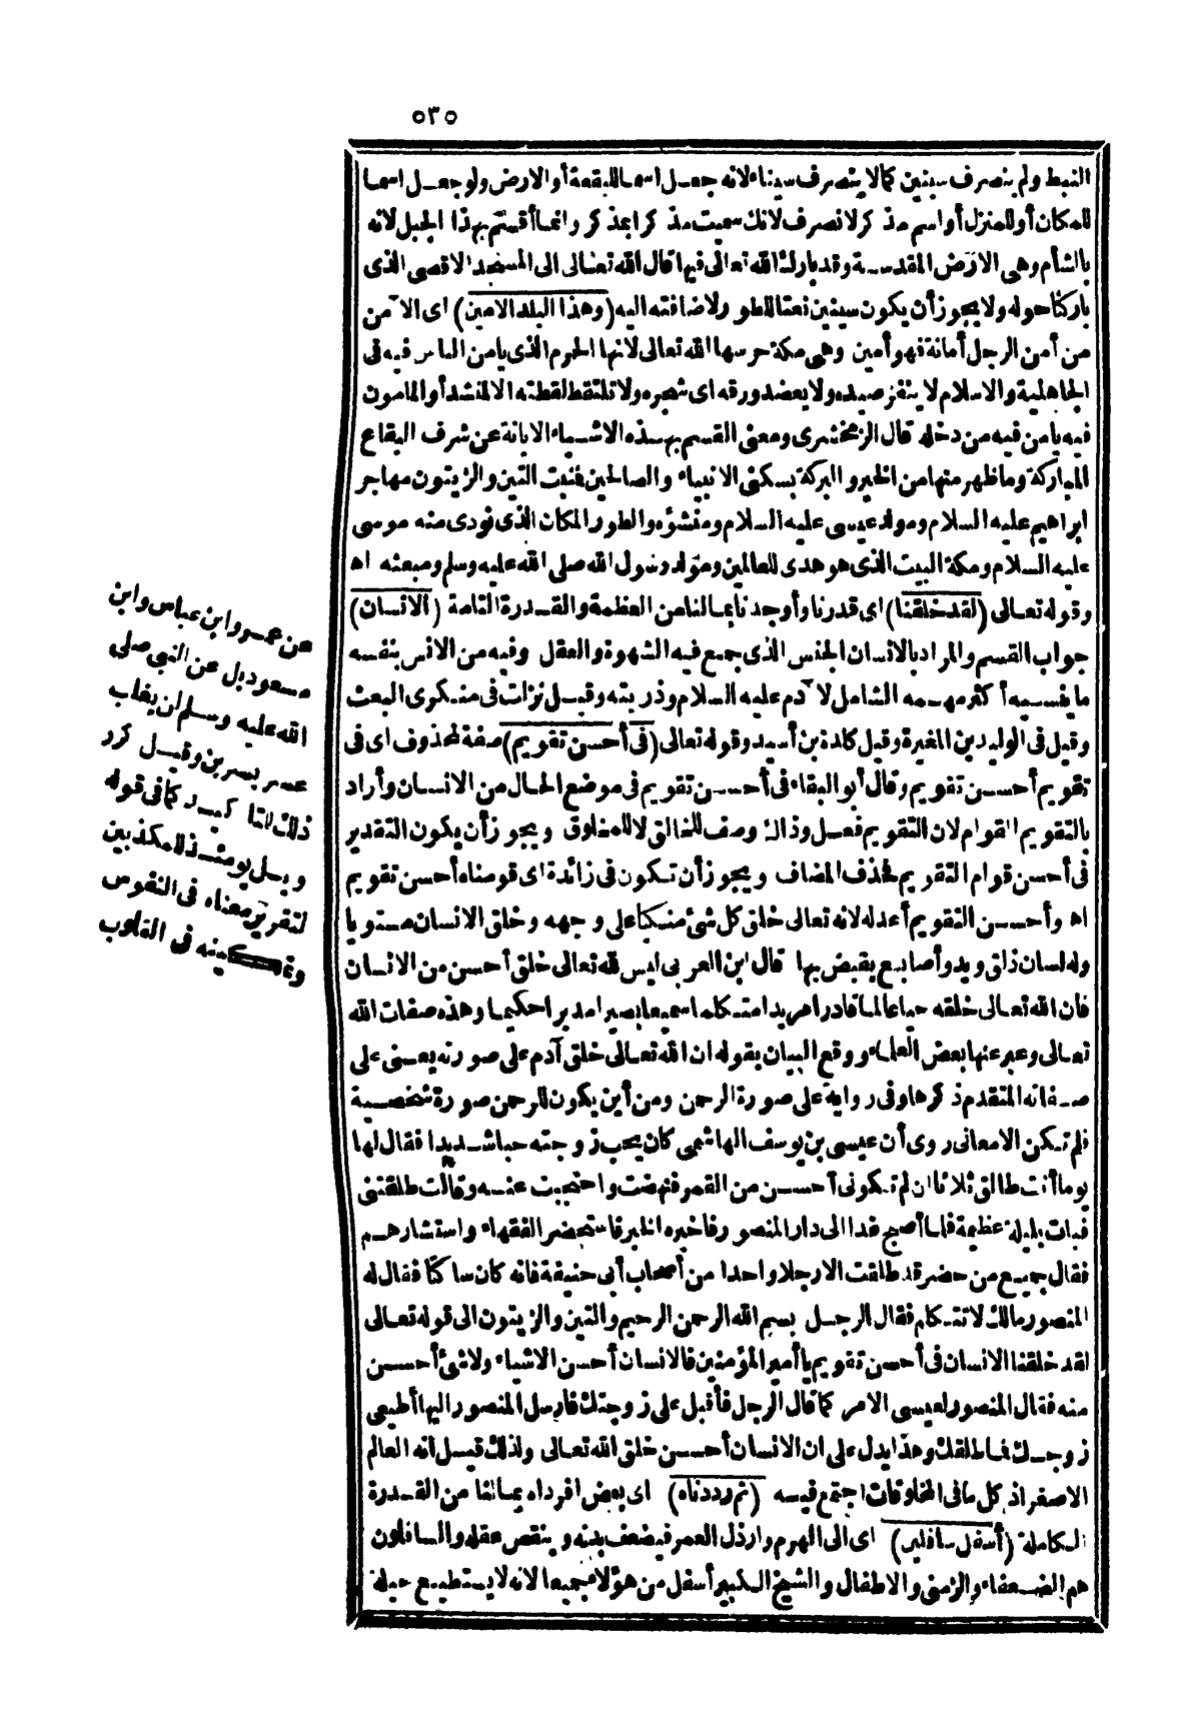 ٥٣٥
النبط ولم ينصرف سينين كمالا ينصرف سيناء لانه جعل اسماللبقعة أو الارض ولو جعل اسما
للمكان أو للمنزل أو اسم مذكر لانصرف لانك سميت مذكرا بمذكر وانما أقسم بهذا الجبل لانه
بالشأم وهى الارض المقدسة وقد بارك الله تعالى فيها قال الله تعالى الى المسجد الاقصى الذى
باركنا حوله ولا يجوز أن يكون سينين نعتا للطور لاضافته اليه (وهذا البلد الامين) اى الآمن
من أمن الرجل أمانة فهو أمين وهى مكة حرسها الله تعالى لانها الحرم الذى يامن الناس فيه فى
الجاهلية والاسلام لا ينفر صيده ولا يعضد ورقه اى شجره ولا تلتقط لقطته الا لمنشد أو المامون
فيه يامن فيه من دخله قال الزمخشرى ومعنى القسم بهذه الاشياء الابانة عن شرف البقاع
المباركة وما ظهر منها من الخير والبركة بسكنى الانبياء والصالحين فنبت التين والزيتون مهاجر
ابراهيم عليه السلام ومولد عيسى عليه السلام ومنشؤه والطور المكان الذى نودى منه موسى
عليه السلام ومكة البيت الذى هو هدى للعالمين ومولد رسول الله صلى الله عليه وسلم ومبعثه اه
وقوله تعالى (لقد خلقنا) اى قدرنا وأوجدنا بمالنا من العظمة والقدرة التامة (الانسان)
جواب القسم والمراد بالانسان الجنس الذى جمع فيه الشهوة والعقل وفيه من الانس بنفسه
ما ينسيه أكثر مهمه الشامل لآدم عليه السلام وذريته وقيل نزلت فى منكرى البعث
وقيل فى الوليد بن المغيرة وقيل كلدة بن أسيد وقوله تعالى (فى أحسن تقويم) صفة لمحذوف اى فى
تقويم أحسن تقويم وقال أبو البقاء فى أحسن تقويم فى موضع الحال من الانسان وأراد
بالتقويم القوام لان التقويم فعل وذاك وصف للخالق لا للمخلوق ويجوز أن يكون التقدير
فى أحسن قوام التقويم فحذف المضاف ويجوز أن تكون فى زائدة اى قومناه أحسن تقويم
اه وأحسن التقويم أعدله لانه تعالى خلق كل شئ منكبا على وجهه وخلق الانسان مستويا
وله لسان ذلق ويد وأصابع يقبض بها قال ابن العربى ليس لله تعالى خلق أحسن من الانسان
فان الله تعالى خلقه حيا عالما قادرا مريدا متكلما سميعا بصيرا مدبرا حكيما وهذه صفات الله
تعالى وعبر عنها بعض العلماء ووقع البيان بقوله ان الله تعالى خلق آدم على صورته يعنى على
صفاته المتقدم ذكرها وفى رواية على صورة الرحمن ومن أين يكون للرحمن صورة شخصية
فلم تكن الا معانى روى أن عيسى بن يوسف الهاشمى كان يحب زوجته حبا شديدا فقال لها
يوما أنت طالق ثلاثا ان لم تكونى أحسن من القمر فنهضت واحتجبت عنه وقالت طلقتنى
فبات بليلة عظيمة فلما أصبح غدا الى دار المنصور فأخبره الخبر فاستحضر الفقهاء واستشارهم
فقال جميع من حضر قد طلقت الا رجلا واحدا من أصحاب أبى حنيفة فانه كان ساكتا فقال له
المنصور مالك لا تتكلم فقال الرجل بسم الله الرحمن الرحيم والتين والزيتون الى قوله تعالى
لقد خلقنا الانسان فى أحسن تقويم يا أمير المؤمنين فالانسان أحسن الاشياء ولا شئ أحسن
منه فقال المنصور لعيسى الامر كما قال الرجل فأقبل على زوجتك فارسل المنصور اليها أطيعى
زوجك فما طلقك وهذا يدل على ان الانسان أحسن خلق الله تعالى ولذلك قيل انه العالم
الاصغر اذ كل ما فى المخلوقات اجتمع فيه (ثم رددناه) اى بعض افراده بمالنا من القدرة
الكاملة (أسفل سافلين) اى الى الهرم وارذل العمر فيضعف بدنه وينقص عقله والسافلون
هم الضعفاء والزمنى والاطفال والشيخ الكبير أسفل من هؤلاء جميعا لانه لا يستطيع حيلة
عن عمر وابن عباس وابن
مسعود بل عن النبى صلى
الله عليه وسلم لن يغلب
عسر يسرين وقيل كرر
ذلك تاكيدا كما فى قوله
ويل يومئذ للمكذبين
لتقرير معناه فى النفوس
وتمكينه فى القلوب